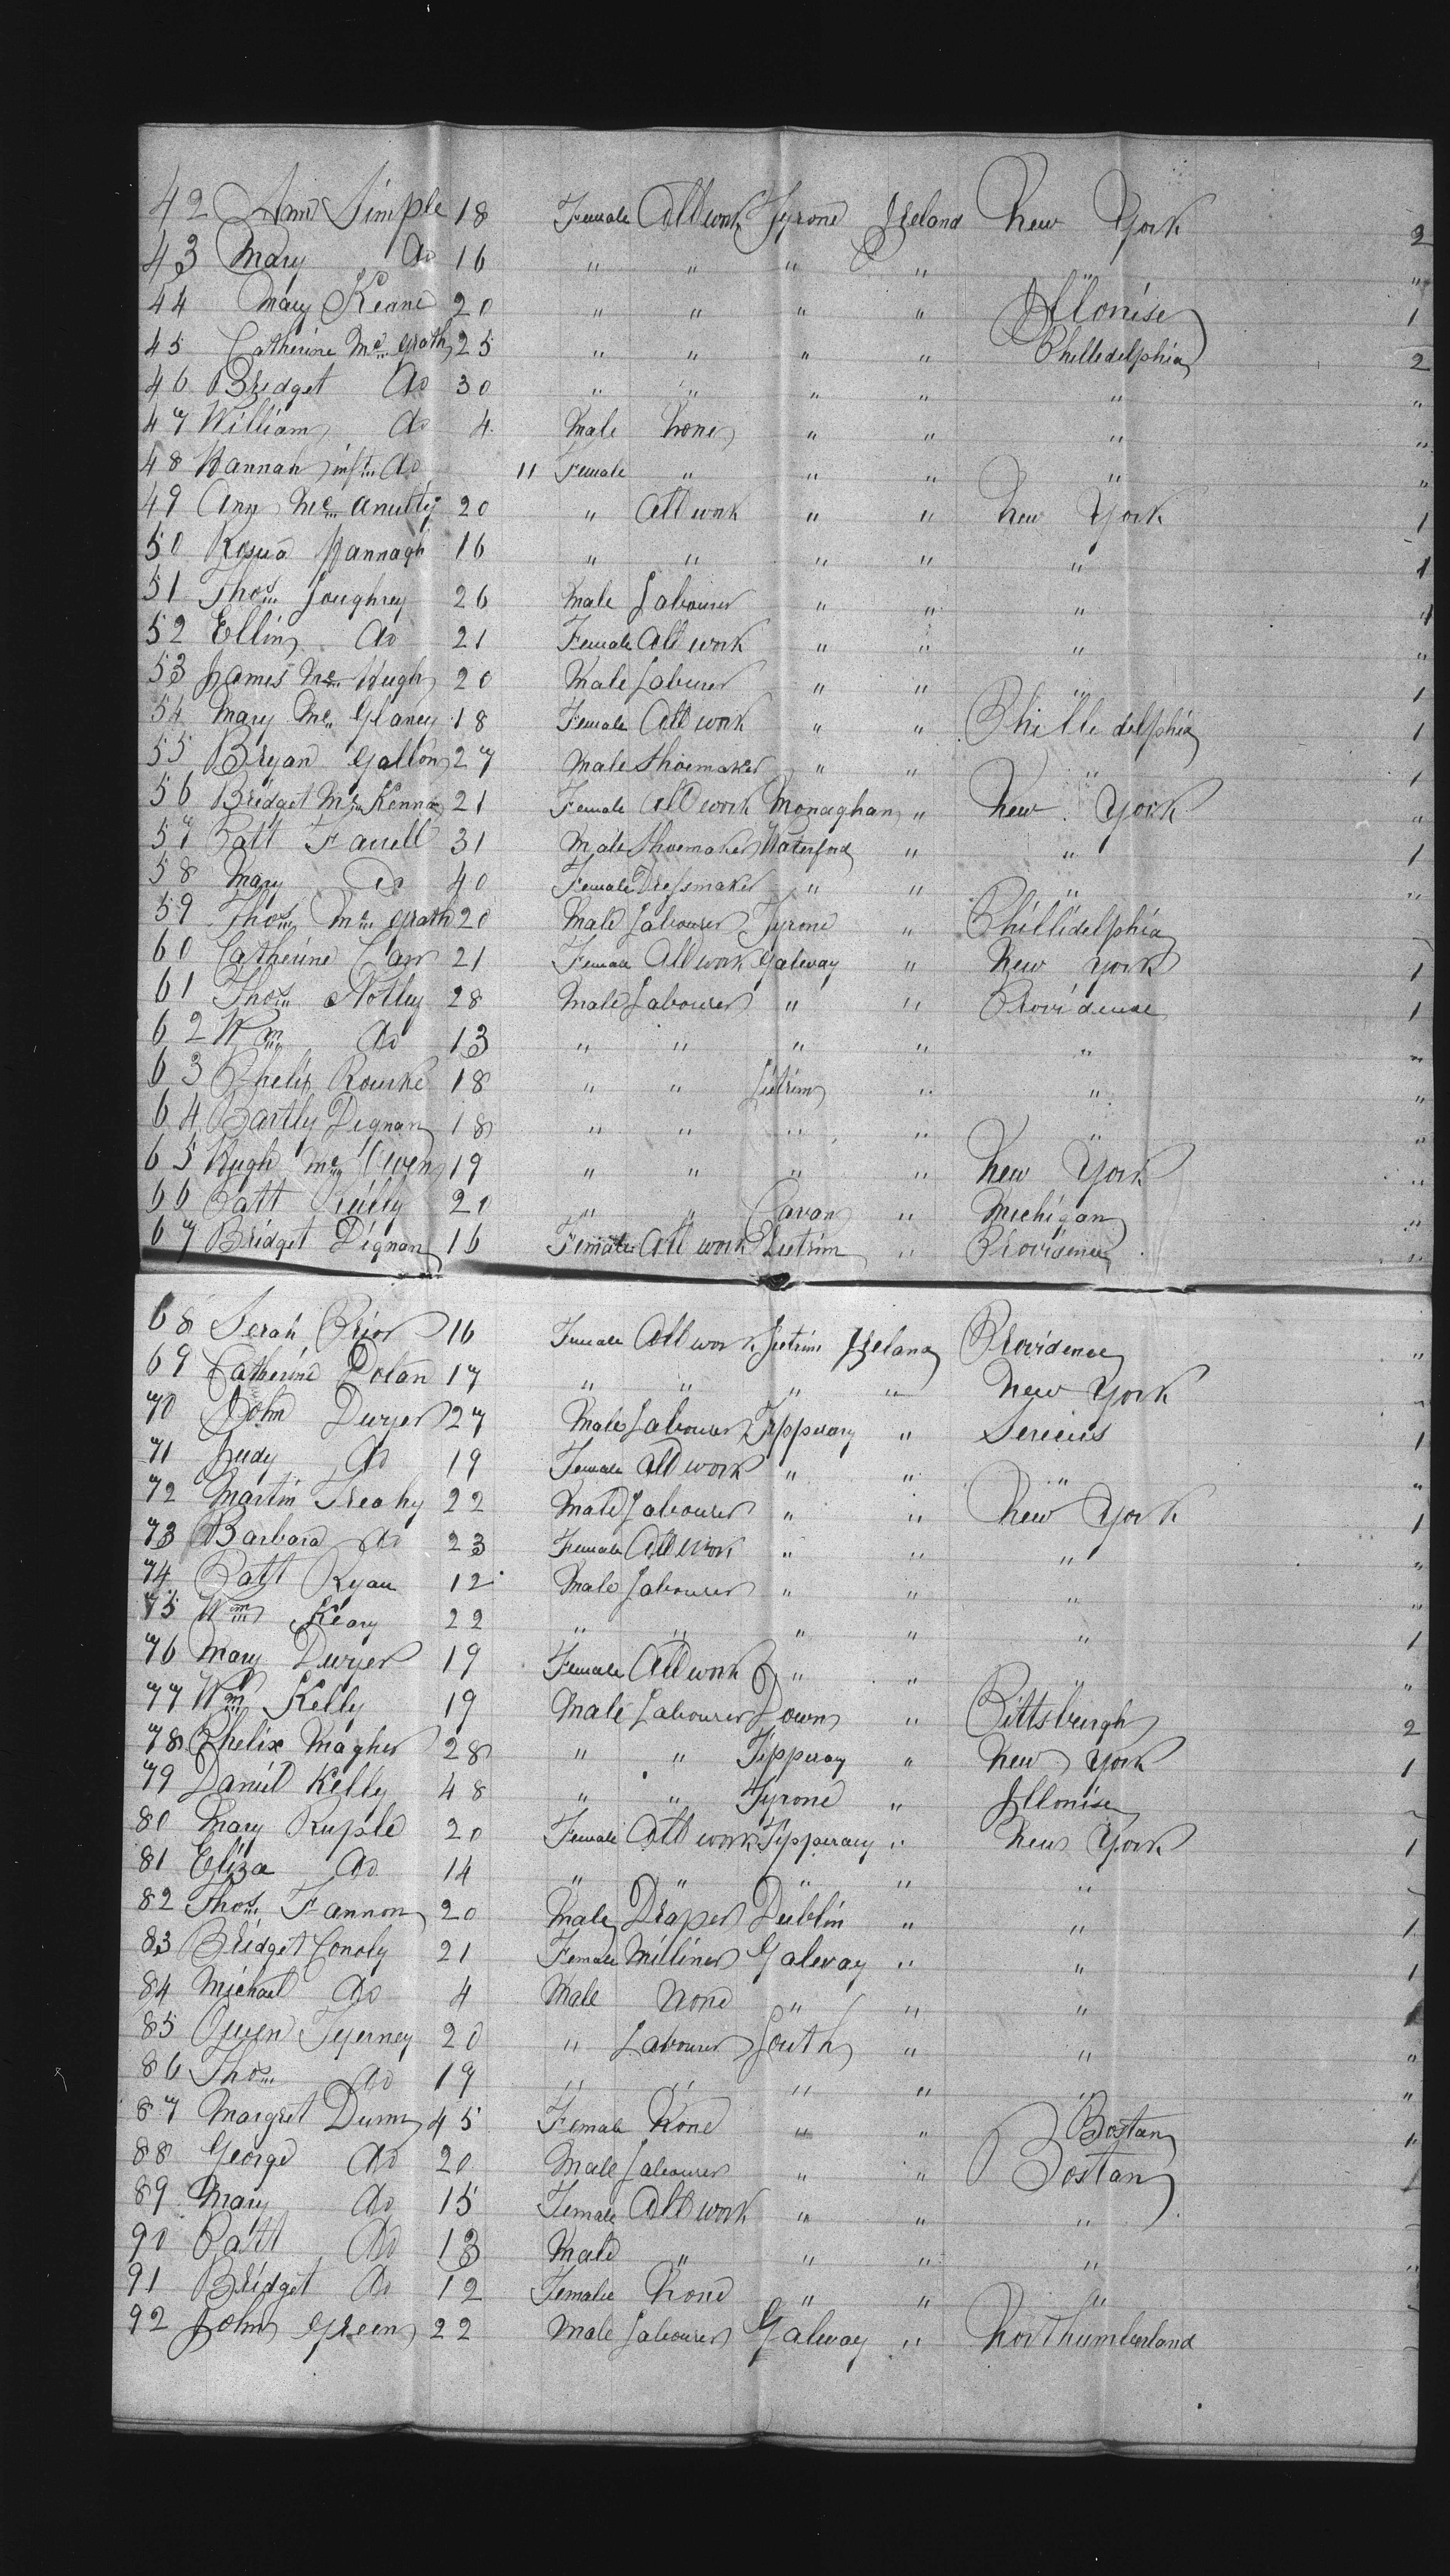 42 Ann Simple 18 Female All work Tyrone Ireland New York 2
43 Mary do 16 " " " " " "
44 Mary Keane 20 " " " " Illonise 1
45 Catherine Mc Grath 25 " " " " Philledelphia 2
46 Bredget do 30 " " " " " "
47 William do 4 Male None " " " "
48 Hannah inft do 11 Female " " " " "
49 Ann Mc Anulty 20 " All work " " New York 1
50 Rosua Hannagh 16 " " " " " 1
51 Thos Loughrey 26 Male Labourer " " " 1
52 Ellin do 21 Female All work " " " "
53 James Mc Hugh 20 Male Laburer " " " 1
54 Mary Mc Glaney 18 Female All work " " Phille delphia 1
55 Bryan Gallon 27 Male Shoemaker " " " 1
56 Bridget Mc Kenna 21 Female All work Monaghan " New York "
57 Patt Farrell 31 Male Shoemaker Waterford " " 1
58 Mary do 40 Female Dressmaker " " " "
59 Thos Mc Grath 20 Male Labourer Tyrone " Phillidelphia
60 Catherine Carr 21 Female All work Galway " New York 1
61 Thos Notley 28 Male Labourer " " Providense 1
62 Wm do 13 " " " " " "
63 Phelix Rourke 18 " " Litrim " " "
64 Bartly Dignan 18 " " " " " "
65 Hugh Mc Owen 19 " " " " New York "
66 Patt Reilly 21 " " Cavan " Michigan "
67 Bridget Dignan 16 Female All work Lietrim " Providence "
68 Serah Prior 16 Female All work Lietrim Ireland Providence "
69 Catherine Dolan 17 " " " " New York
70 John Dwyer 27 Male Labourer Tipperary " Sericius 1
71 Judy do 19 Female All work " " " "
72 Martin Treahy 22 Male Labourer " " New York 1
73 Barbara do 23 Female All work " " " "
74 Patt Ryan 12 Male Labourer " " " "
75 Wm Keary 22 " " " " " 1
76 Mary Dwyer 19 Female All work " " " "
77 Wm Kelly 19 Male Labourer Down " Pittsburgh 2
78 Phelix Magher 28 " " Tipperay " New York 1
79 Daniel Kelly 48 " " Tyrone " Illonise
80 Mary Ruple 20 Female All work Tipperary " New York 1
81 Eliza do 14 " " " " "
82 Thos Fannon 20 Male Draper Dublin " " 1
83 Bridget Conoly 21 Female Milliner Galway " " 1
84 Michael do 4 Male None " " "
85 Owen Tyerney 20 " Labourer Louth " " "
86 Thos do 19 " " " " " "
87 Margret Dunn 45 Female None " " Bostan "
88 George do 20 Male Labourer " " Bostan
89 Mary do 15 Female All work " " "
90 Patt do 13 Male " " " " "
91 Bridget do 12 Female None " " "
92 John Green 22 Male Labourer Galway " Northumberland